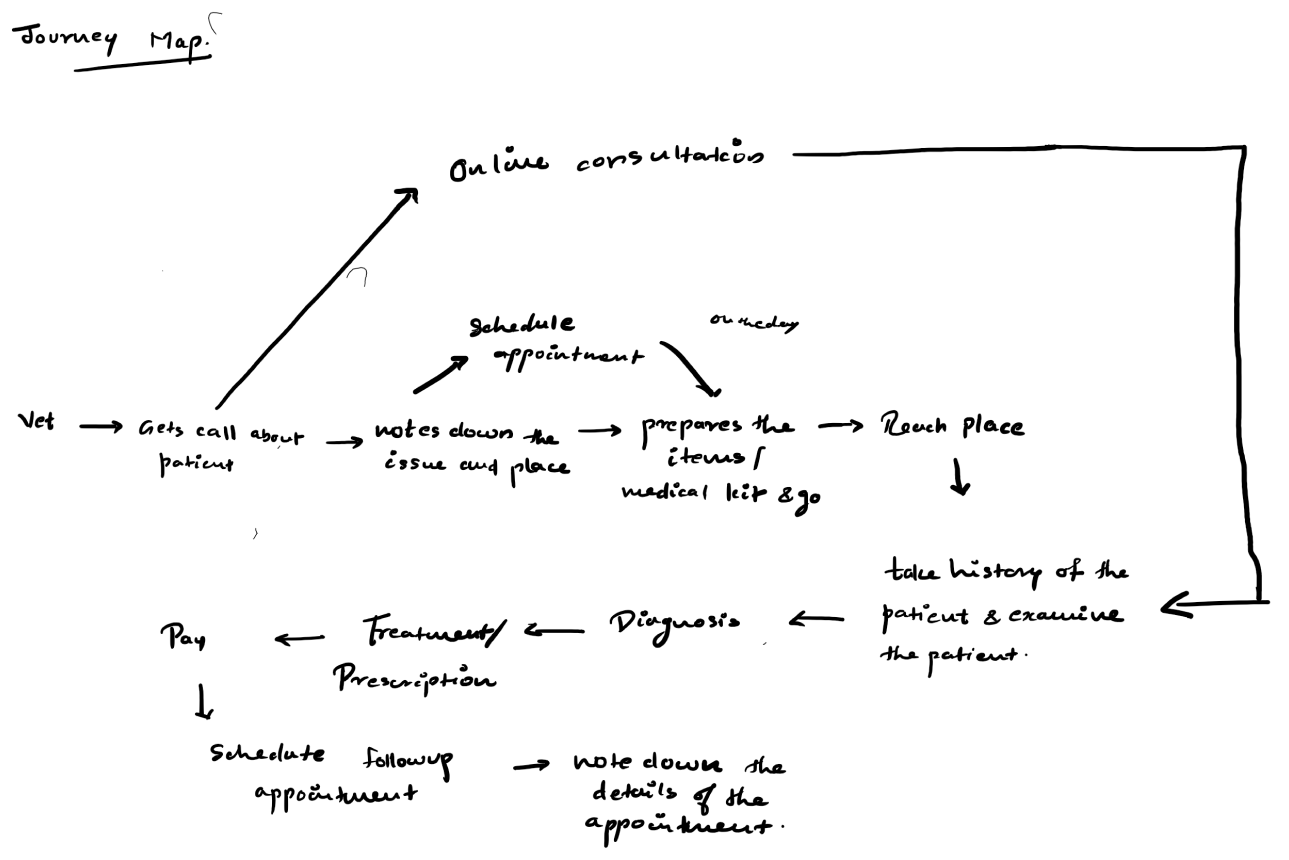 Journey Map.
Online consultation
Schedule
appointment
on the day
Vet
Gets call about
patient
notes down the
issue and place
prepares the
items/
medical kit & go
Reach place
take history of the
patient & examine
the patient.
Diagnosis
Treatment/
Prescription
Pay
Schedule followup
appointment
note down the
details of the
appointment.